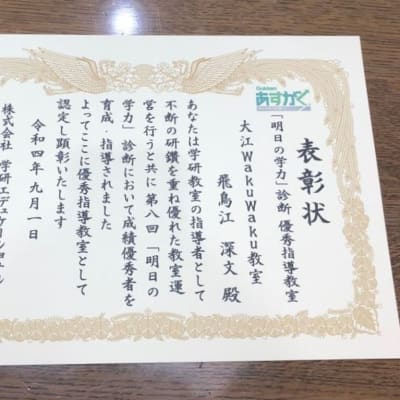 Gakken
あすがく
表彰状
「明日の学力」診断 優秀指導教室
大江WakuWaku教室
飛鳥江 深文 殿
あなたは学研教室の指導者として
不断の研鑽を重ね優れた教室運
営を行うと共に第八回「明日の
学力」診断において成績優秀者を
育成・指導されました
よってここに優秀指導教室として
認定し顕彰いたします
令和四年九月一日
株式会社 学研エデュケーショナル